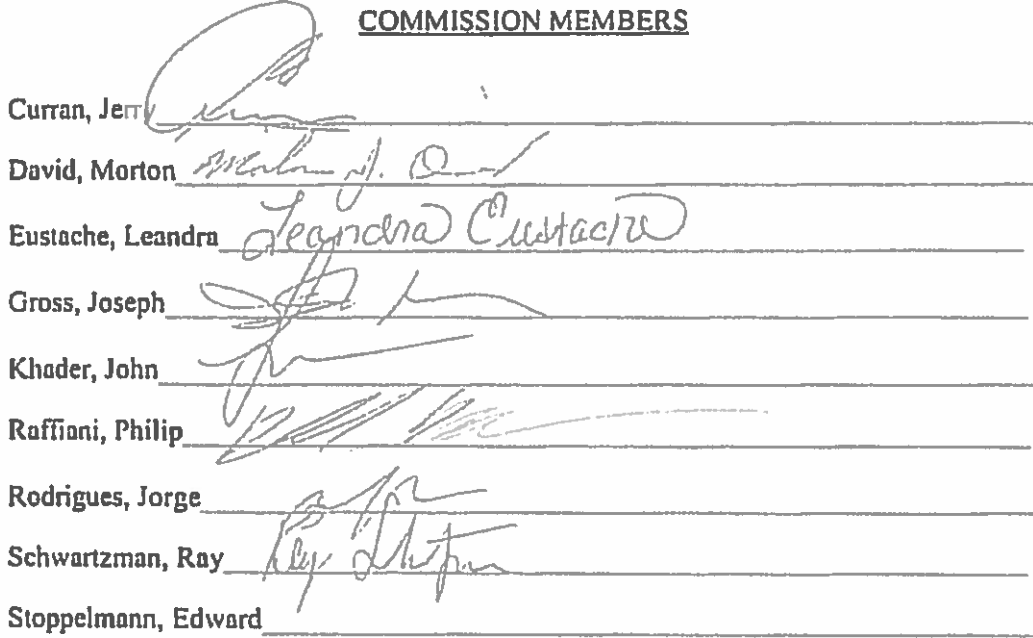 COMMISSION MEMBERS
Curran, Jerry
David, Morton Morton J. David
Eustache, Leandra Leandra Eustache
Gross, Joseph
Khader, John
Raffiani, Philip
Rodrigues, Jorge
Schwartzman, Ray Ray
Stoppelmann, Edward